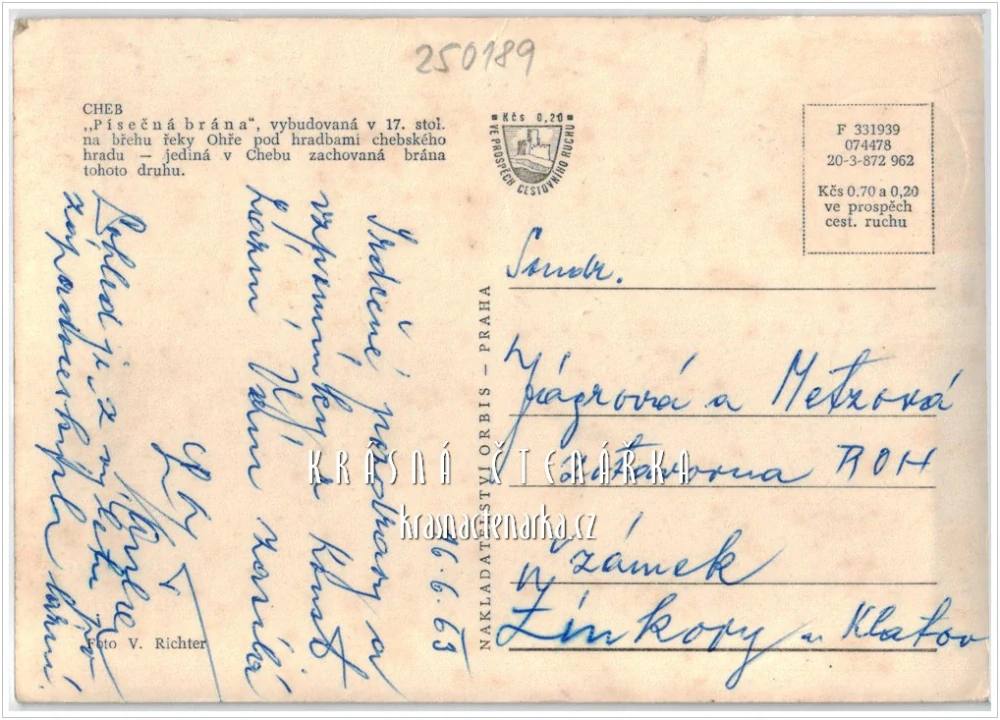 250189
CHEB
„Písečná brána“, vybudovaná v 17. stol.
na břehu řeky Ohře pod hradbami chebského
hradu — jediná v Chebu zachovaná brána
tohoto druhu.
Kčs 0,20
VE PROSPĚCH CESTOVNÍHO RUCHU
F 331939
074478
20-3-872 962
Kčs 0.70 a 0,20
ve prospěch
cest. ruchu
NAKLADATELSTVÍ ORBIS – PRAHA
16. 6. 63
Srdečné pozdravy a
vzpomínky z
Vám
Pohled je z výletu po
západočeských
Soudr.
Jágrová a Metzová
zotavovna ROH
Zámek
Žinkovy u Klatov
Foto V. Richter
KRÁSNÁ ČTENÁŘKA
krasnactenarka.cz